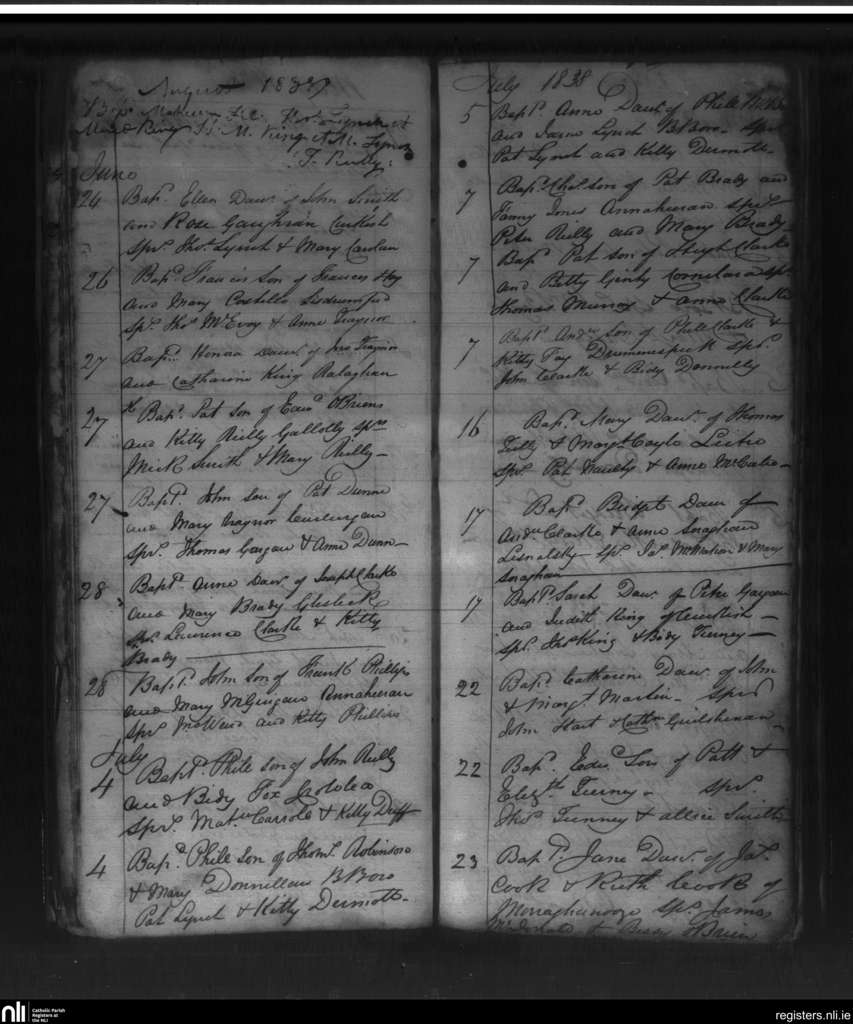 August 1837
Bapd. Mathew
Mary Biny M. King & M.
T. Reilly
June
24 Bapd. Ellen Dawr. of John Smith
and Rose Gaughran Curkish
Spr. Thos. Lynch & Mary Carolan
26 Bapd. Francis Son of Frances Hoy
and Mary Costello Lisdrumford
Spr. Thos. McEvoy & Anne Traynor
27 Bapd. Honna Dawr. of Jno Traynor
and Catharine King Ralaghan
27 Bapd. Pat Son of Edwd. OBriens
and Kitty Reilly Gallolly Sprs
Mick Smith & Mary Reilly
27 Bapt. John Son of Pat Dunne
and Mary Traynor
Spr. Thomas Gargan & Anne Dunn
28 Bapt. Anne Dawr. of Joseph Clarke
and Mary Brady
Spr. Lawrence Clarke & Kitty
Brady
28 Bapt. John Son of Frank Phillips
and Mary McGurgan Annaheeran
Spr. and Kitty Phillips
July
4 Bapt. Phile Son of John Reilly
and Bidy Fox
Spr. Matw. Carroll & Kitty Duff
4 Bapd. Phile Son of Thoms. Robinson
& Mary Donnellan BBoro
Pat Lynch & Kitty Dermott
July 1838
5 Bapt. Anne Dawr. of Phile
and Lynch BBoro Spr
Pat Lynch and Kitty Dermott
7 Bapd. Chas. Son of Pat Brady and
Fanny Jones Annaheeran Sprs
Peter Reilly and Mary Brady
7 Bapd. Pat Son of Hugh Clarke
and Betty Ginty Spr
Thomas Murray & Anne Clarke
7 Bapt. Andw Son of Phile Clarke &
Kitty Fay Drummespick Sprs.
John Clarke & Bidy Donnelly
16 Bapd. Mary Dawr. of Thomas
Tully & Margt. Coyle Leitre
Spr. Pat & Anne McCabe
17 Bapd. Bridget Dawr of
Andw Clarke & Anne Snaghan
Spr. Jas. McMahon & Mary
Snaghan
17 Bapd. Sarah Dawr of Peter Gargan
and Judith King of Curkish
Spr. Thos King & Bidy Tierney
22 Bapd. Catharine Dawr. of John
& Margt. Martin Spr
John Hart & Cathn
22 Bapd. Edwd. Son of Patt &
Elizth. Tierney Spr.
Thos. Tierney & Allice Smith
23 Bapt. Jane Dawr. of Jas.
Cook & Ruth Cook of
Spr. James
& Bessy OBrien
nli
Catholic Parish
Registers at
the NLI
registers.nli.ie